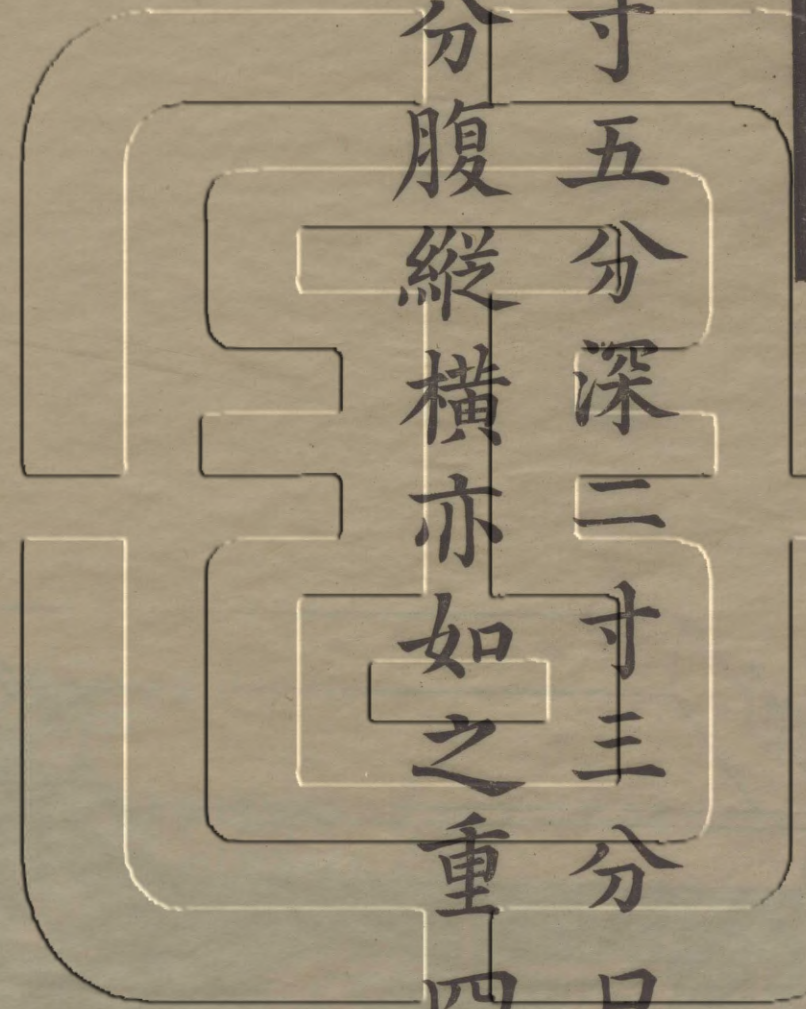 寸五分深二寸三分口
分腹縱橫亦如之重四